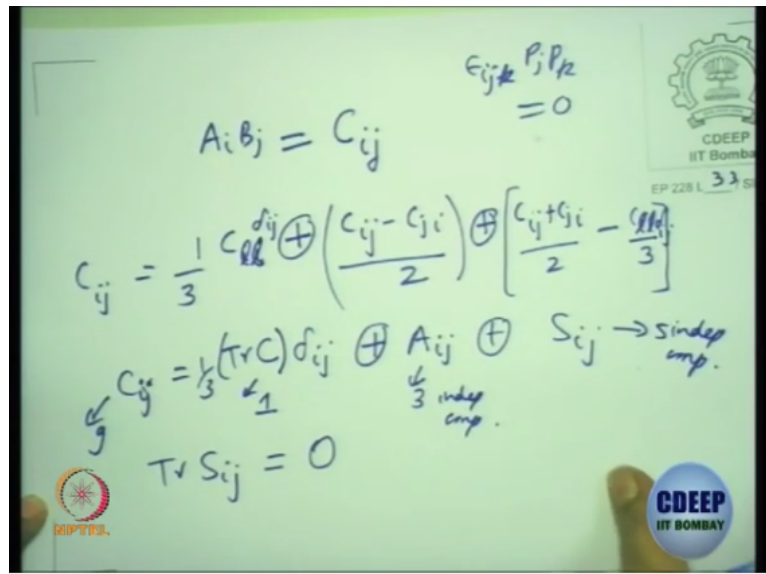 ϵijk Pj Pk
= 0
Ai Bj = Cij
CDEEP
IIT Bomba
EP 228 L 33 / Sl
Cij = 1/3 Cll δij ⊕ ( (Cij - Cji) / 2 ) ⊕ [ (Cij + Cji) / 2 - Cll δij / 3 ]
Cij = 1/3 (Tr C) δij ⊕ Aij ⊕ Sij → 5 indep
cmp.
9
1
3 indep
cmp.
Tr Sij = 0
NPTEL
CDEEP
IIT BOMBAY